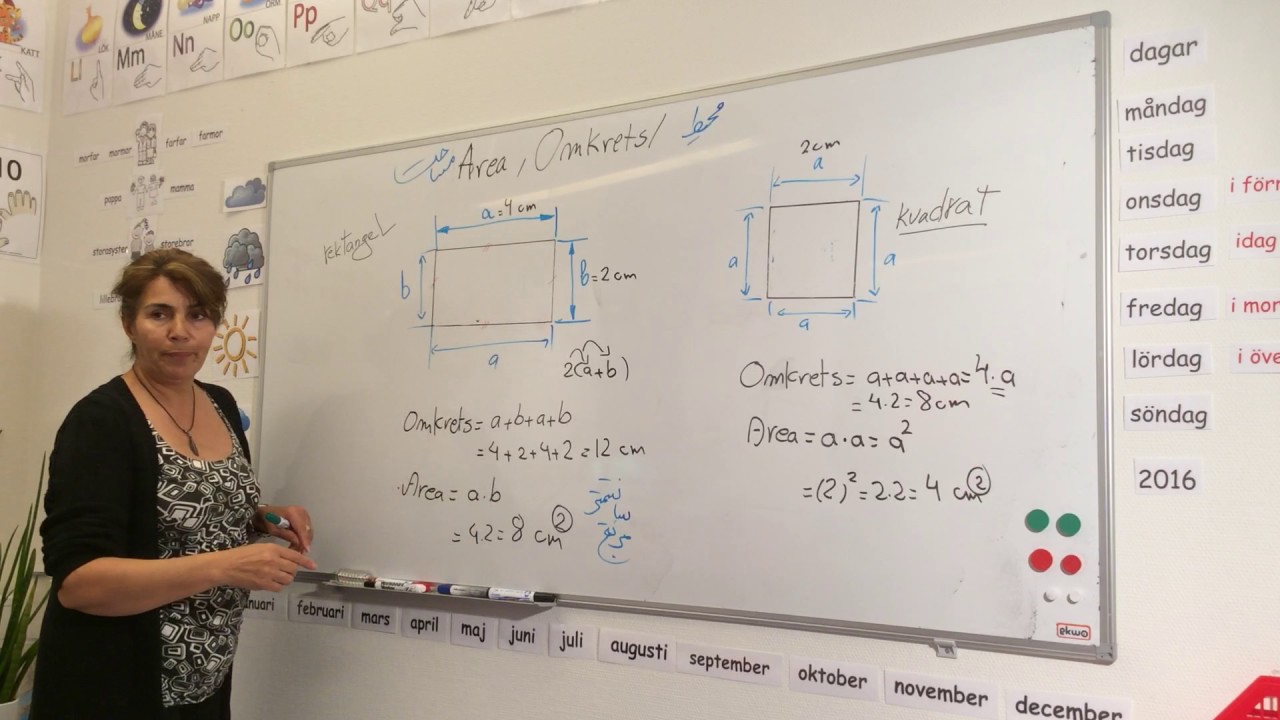 KATT
LÖK
MÅNE
NAPP
ORM
Ll
Mm
Nn
Oo
Pp
10
morfar mormor farfar farmor
pappa mamma
storasyster storebror
مساحت Area, Omkrets/ محیط
rektangel
a=4 cm
b
b=2 cm
a
2(a+b)
Omkrets= a+b+a+b
=4+2+4+2=12 cm
Area= a.b
=4.2=8 cm②
سانتیمتر
مربع
2cm
a
kvadrat
a
a
a
Omkrets= a+a+a+a=4.a
=4.2=8cm
Area=a.a=a²
=(2)²=2.2=4 cm②
ekwo
dagar
måndag
tisdag
onsdag
torsdag
fredag
lördag
söndag
2016
i förr
idag
i mor
i öve
anuari februari mars april maj juni juli augusti september oktober november december